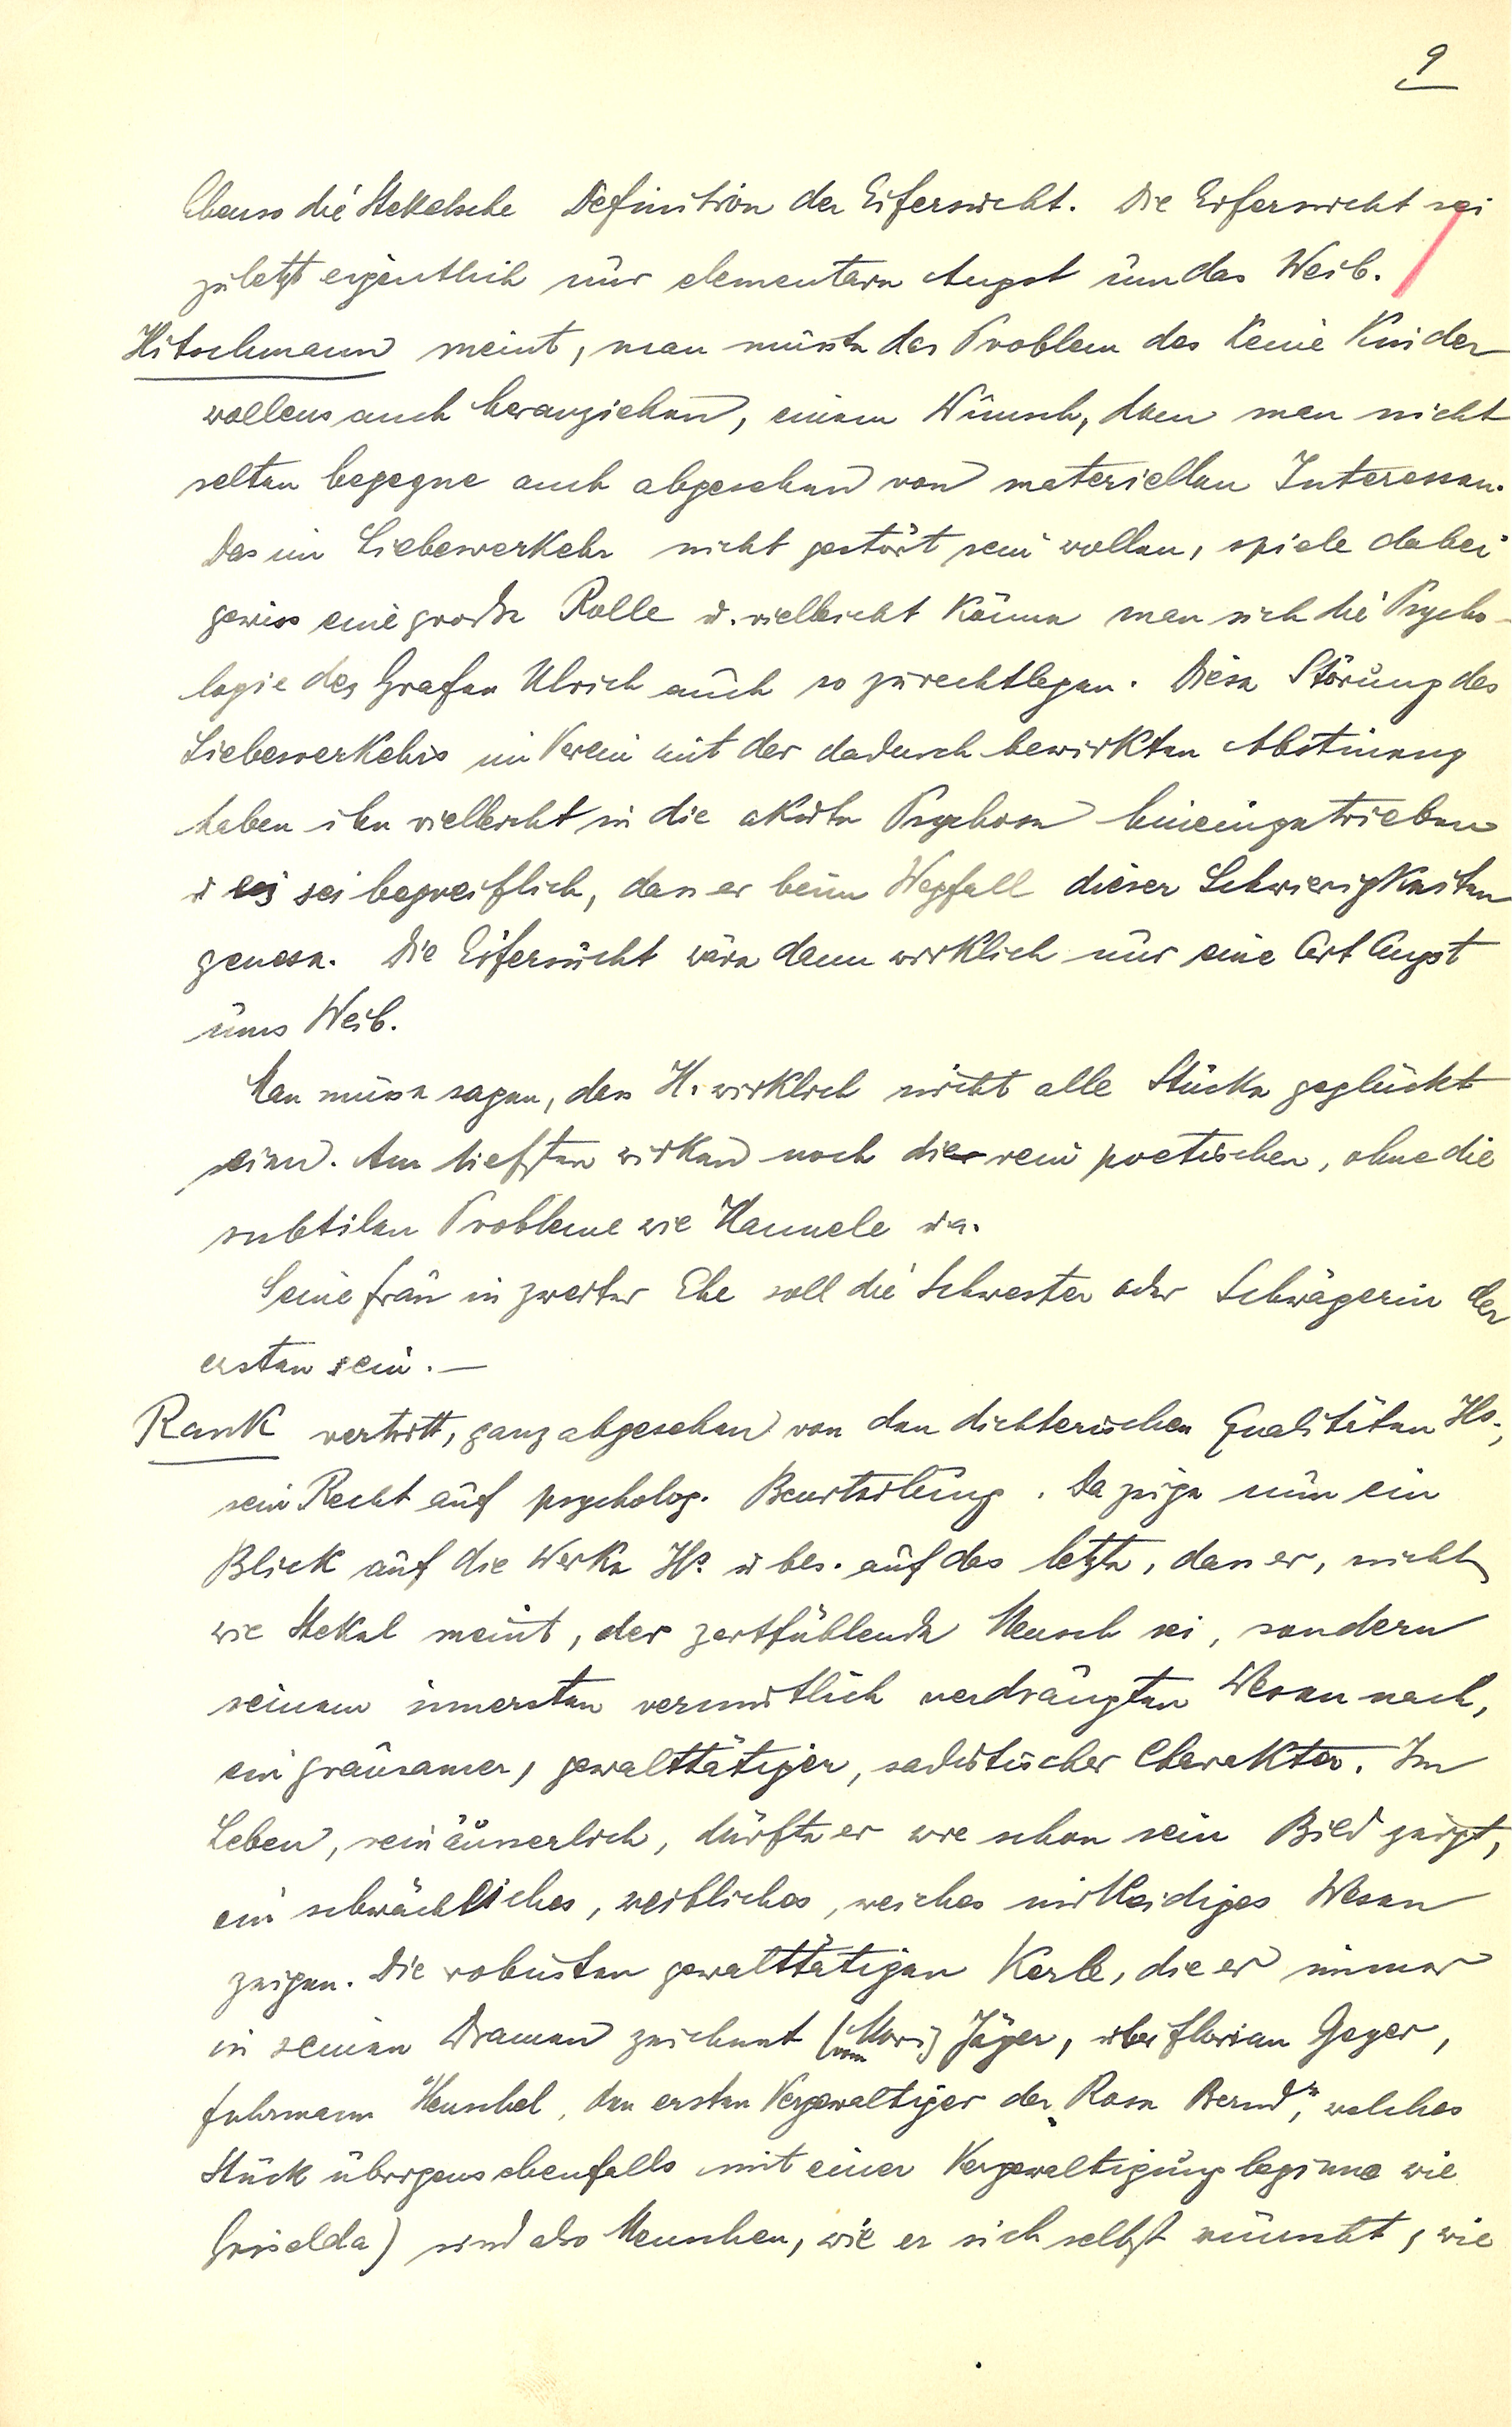 9
Ebenso die Stekelsche Definition der Eifersucht. Die Eifersucht sei
zuletzt eigentlich nur elementare Angst um das Weib.
Hitschmann meint, man müsste das Problem des Keine Kinder
wollens auch heranziehen, einem Wunsch, dem man nicht
selten begegne auch abgesehen von materiellen Interessen.
Das im Liebesverkehr nicht gestört sein wollen, spiele dabei
gewiss eine grosse Rolle u. vielleicht könne man sich die Psycho-
logie des Grafen Ulrich auch so zurechtlegen. Diese Störung des
Liebesverkehrs im Verein mit der dadurch bewirkten Abstinenz
haben ihn vielleicht in die akute Psychose hineingetrieben
u es sei begreiflich, dass er beim Wegfall dieser Schwierigkeiten
genese. Die Eifersucht wäre dann wirklich nur eine Art Angst
ums Weib.
Man müsse sagen, dass H. wirklich nicht alle Stücke geglückt
seien. Am tiefsten wirken noch die rein poetischen, ohne die
subtilen Probleme wie Hannele ua.
Seine Frau in zweiter Ehe soll die Schwester oder Schwägerin der
ersten sein. —
Rank vertritt, ganz abgesehen von den dichterischen Qualitäten Hs.,
sein Recht auf psycholog. Beurteilung. Da zeige nun ein
Blick auf die Werke Hs. u bes. auf das letzte, dass er, nicht
wie Stekel meint, der zartfühlende Mensch sei, sondern
seinem innersten vermutlich verdrängten Wesen nach,
ein grausamer, gewalttätiger, sadistischer Charakter. Im
Leben, rein äusserlich, dürfte er wie schon sein Bild zeigt,
ein schwächliches, weibliches, weiches mitleidiges Wesen
zeigen. Die robusten gewalttätigen Kerle, die er immer
in seinen Dramen zeichnet (vom Moriz Jäger, über Florian Geyer,
Fuhrmann Henschel, den ersten Vergewaltiger der „Rose Bernd", welches
Stück übrigens ebenfalls mit einer Vergewaltigung beginne wie
Griselda) sind also Menschen, wie er sich selbst wünscht, wie